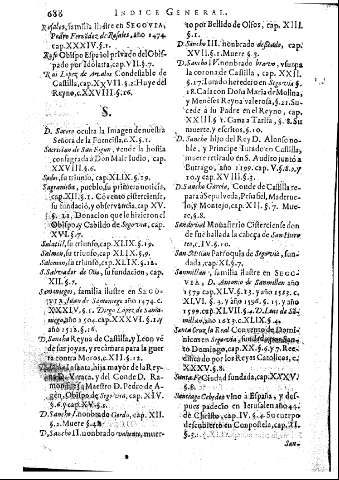 688 INDICE GENERAL.
Rosales, familia ilustre en SEGOVIA,
Pedro Fernandez de Rosales, año 1474.
cap. XXXIV. §. 1.
Obispo Español privado del Obispado
por Idolatra, cap. VII. §. 7.
Rui Lopez de Avalos Condestable de
Castilla, cap. XXVIII. §. 2. Huye del
Reyno, c. XXVIII. §. 16.
S.
D. Sacaro oculta la Imagen de nuestra
Señora de la Fuencisla, c. X. §. 1.
Sacristan de San Facun, vende la hostia
consagrada à Don Mair Iudio, cap.
XXVIII. §. 6.
su triunfo, cap. XLIX. §. 19.
Sagramenia, pueblo, su primera noticia,
cap. XII. §. 1. Convento cisterciense,
su fundacion, y observancia, cap. XV.
§. 21. Donacion que le hizieron el
Obispo, y Cabildo de Segovia, cap.
XVI. §. 7.
su triunfo, cap. XLIX. §. 19.
Salmon, su triunfo, cap. XLIX. §. 19.
Salomon, su triunfo, cap. XLIX. §. 12.
Salvador de su fundacion, cap.
XII. §. 7.
Samaniegos, familia ilustre en SEGOVIA,
Iuan de Samaniego año 1474. c.
XXXIV. §. 1. Diego Lopez de Samaniego,
año 1504. cap. XXXVI. §. 1. y
año 1512. §. 16.
D. Sancha Reyna de Castilla, y Leon vende
sus joyas, y recamara para la guerra
contra Moros, c. XII. §. 12.
Infanta, hija mayor de la Reyna
D. Vrraca, y del Conde D. Ramon
à Maestro D. Pedro de Agen,
Obispo de Segovia, cap. XIV.
§. 6. y cap. XV. §. 1.
D. Sancho I. nombrado Gordo, cap. XII.
§. 2. Muere §. 48
D. Sancho II. nombrado valiente, muerto
por Bellido de Olfos, cap. XIII.
§. 1.
D. Sancho III. nombrado deseado, cap.
XVII. §. 1. Muere §. 7.
D. Sancho IV. nombrado bravo, usurpa
la corona de Castilla, cap. XXII.
§. 17. Iurado heredero en Segovia §.
18. Casa con Doña Maria de Molina,
y Meneses Reyna valerosa, §. 21. Sucede
à su Padre en el Reyno, cap.
XXIII. §. 1. Gana à Tarifa, §. 8. Su
muerte, y escritos, §. 10.
D. Sancho hijo del Rey D. Alonso noble,
y Principe Iurado en Castilla,
muere retirado en S. Audito junto à
Butrago, año 1299. cap. V. §. 8. y
10. y cap. XVIII. §. 3.
D. Sancho Garcia, Conde de Castilla repara
à Sepulveda, Peñafiel, Maderuelo,
y Montejo, cap. XII. §. 7. Muere,
§. 8.
Sandoval Monasterio Cisterciense donde
fue hallada la cabeça de San Hieroteo,
c. IV. §. 10.
San Adrian Parroquia de Segovia, fundada,
cap. XI. §. 7.
Sanmillan, familia ilustre en SEGOVIA,
D. Antonio de Sanmillan año
1579. cap. XLV. §. 23. año 1583. c.
XLVI. §. 3. y año 1596. §. 15. año
1599. cap. XLVII. §. 4. D. Luis de Sanmillan,
año 1623. c. XLIX. §. 4.
Santa Cruz la Real Convento de Dominicos
en Segovia, fundado
Santo Domingo, cap. XX. §. 7. Reedificado
por los Reyes Catolicos, c.
XXXV. §. 8.
Santa Fè Ciudad fundada, cap. XXXV.
§. 8.
Santiago Cebedeo vino à España, y despues
padecio en Jerusalen año 44.
de Christo, cap. IV. §. 4. Su cuerpo
descubierto en Compostela, cap. XI.
§. 5.
San-